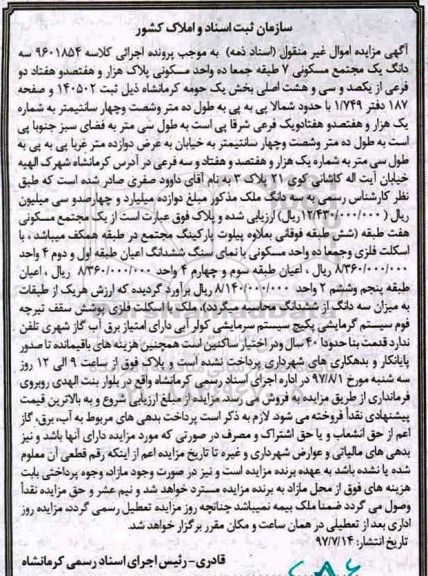 سازمان ثبت اسناد و املاک کشور
آگهی مزایده اموال غیر منقول (اسناد ذمه) به موجب پرونده اجرائی کلاسه ۹۶۰۱۸۵۴ سه
دانگ یک مجتمع مسکونی ۷ طبقه جمعا ده واحد مسکونی پلاک هزار و هفتصدو هفتاد دو
فرعی از یکصد و سی و هشت اصلی بخش یک حومه کرمانشاه ذیل ثبت ۱۴۰۵۰۲ و صفحه
۱۸۷ دفتر ۱/۷۴۹ با حدود شمالا پی به پی به طول ده متر وشصت وچهار سانتیمتر به شماره
یک هزار و هفتصدو هفتادویک فرعی شرقا پی است به طول سی متر به فضای سبز جنوبا پی
است به طول ده متر وشصت وچهار سانتیمتر به خیابان به عرض دوازده متر غربا پی به پی به
طول سی متر به شماره یک هزار و هفتصد و هفتاد و سه فرعی در آدرس کرمانشاه شهرک الهیه
خیابان آیت اله کاشانی کوی ۲۱ پلاک ۳ به نام آقای داوود صفری صادر شده است که طبق
نظر کارشناس رسمی سه دانگ ملک مذکور مبلغ دوازده میلیارد و چهارصدو سی میلیون
ریال (۱۲/۴۳۰/۰۰۰/۰۰۰ ریال) ارزیابی شده و پلاک فوق عبارت است از یک مجتمع مسکونی
هفت طبقه (شش طبقه فوقانی بعلاوه پیلوت پارکینگ مجتمع در طبقه همکف میباشد ، با
اسکلت فلزی وجمعا ده واحد مسکونی با نمای سنگ ششدانگ اعیان طبقه اول و دوم ۴ واحد
۸/۳۶۰/۰۰۰/۰۰۰ ریال ، اعیان طبقه سوم و چهارم ۴ واحد ۸/۳۶۰/۰۰۰/۰۰۰ ریال ، اعیان
طبقه پنجم وششم ۲ واحد ۸/۱۴۰/۰۰۰/۰۰۰ ریال برآورد گردیده که ارزش هریک از طبقات
به میزان سه دانگ از ششدانگ محاسبه میگردد)، ملک با اسکلت فلزی پوشش سقف تیرچه
فوم سیستم گرمایشی پکیج سیستم سرمایشی کولر آبی دارای امتیاز برق آب گاز شهری تلفن
ندارد قدمت بنا حدودا ۴۰ سال ودر اختیار ساکنین است همچنین هزینه های باقیمانده تا صدور
پایانکار و بدهکاری های شهرداری پرداخت نشده است و پلاک فوق از ساعت ۹ الی ۱۲ روز
سه شنبه مورخ ۹۷/۸/۱ در اداره اجرای اسناد رسمی کرمانشاه واقع در بلوار بنت الهدی روبروی
فرمانداری از طریق مزایده به فروش می رسد. مزایده از مبلغ ارزیابی شروع و به بالاترین قیمت
پیشنهادی نقداً فروخته می شود. لازم به ذکر است پرداخت بدهی های مربوط به آب، برق، گاز
اعم از حق انشعاب و یا حق اشتراک و مصرف در صورتی که مورد مزایده دارای آنها باشد و نیز
بدهی های مالیاتی و عوارض شهرداری و غیره تا تاریخ مزایده اعم از اینکه رقم قطعی آن معلوم
شده یا نشده باشد به عهده برنده مزایده است و نیز در صورت وجود مازاد، وجوه پرداختی بابت
هزینه های فوق از محل مازاد به برنده مزایده مسترد خواهد شد و نیم عشر و حق مزایده نقداً
وصول می گردد ضمنا ملک بیمه نمیباشد چنانچه روز مزایده تعطیل رسمی گردد، مزایده روز
اداری بعد از تعطیلی در همان ساعت و مکان مقرر برگزار خواهد شد.
تاریخ انتشار: ۹۷/۷/۱۴
قادری- رئیس اجرای اسناد رسمی کرمانشاه